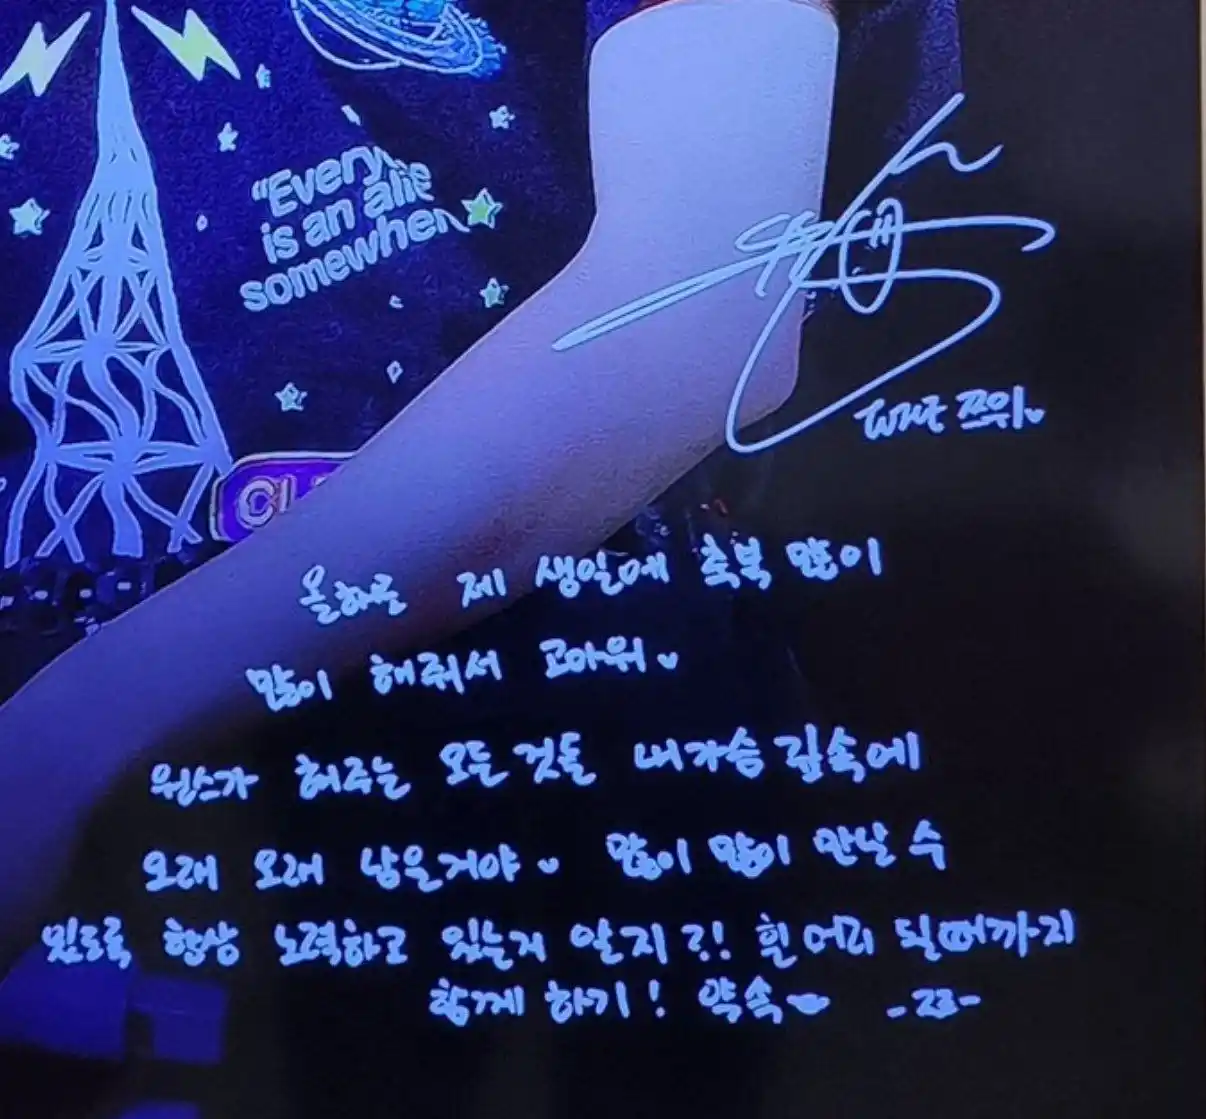 "Every
is an alie
somewher
CL
TWICE 쯔위♥
올해로 제 생일에 축복 많이
많이 해줘서 고마워♥
원스가 해주는 모든 것들 내 가슴 깊속에
오래 오래 남을거야♥ 많이 많이 만날 수
있도록 항상 노력하고 있는거 알지?! 흰 머리 될때까지
함께 하기! 약속♥ -23-